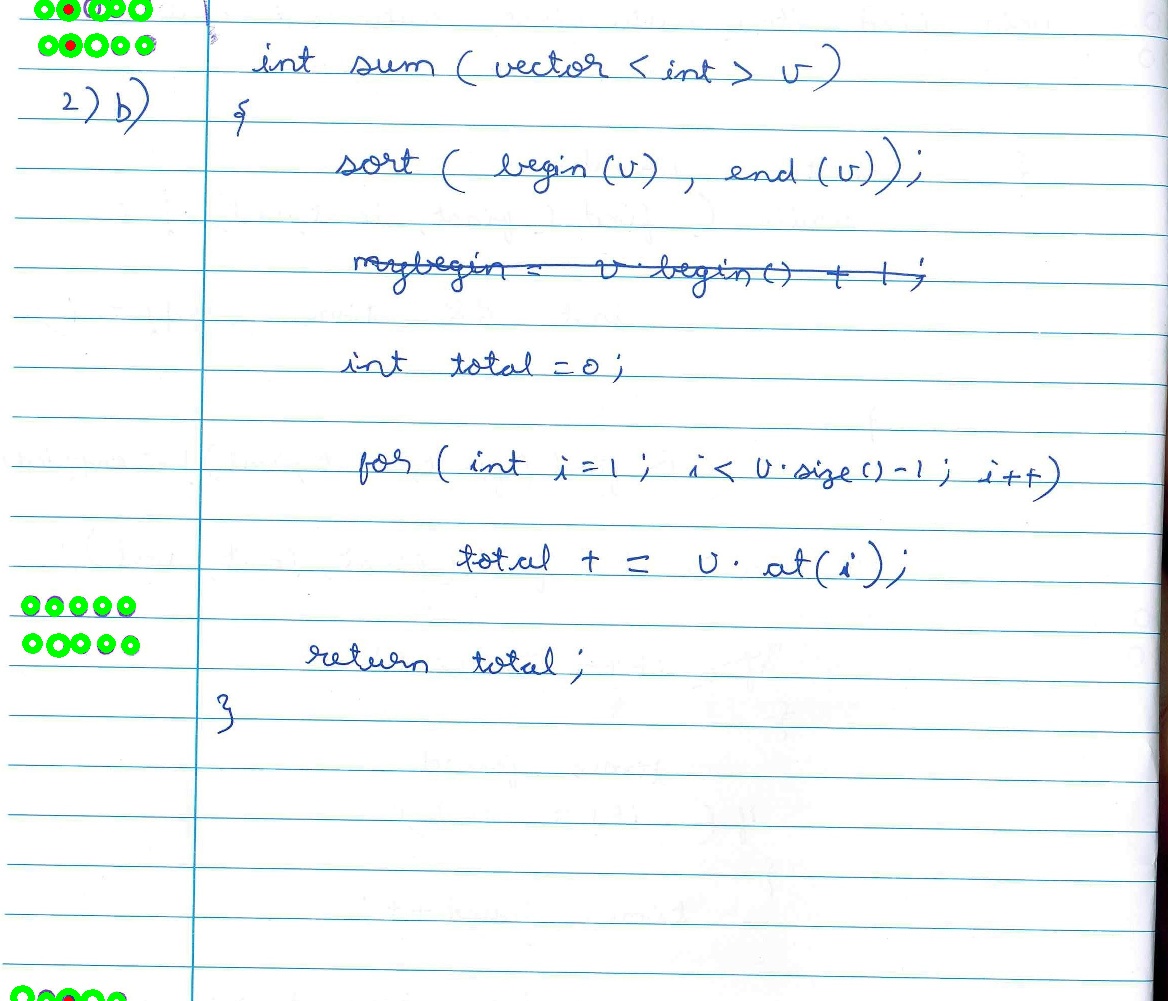 int sum ( vector < int > v )
2) b) {
sort ( begin (v) , end (v));
mybegin = v. begin () + 1 ;
int total = 0 ;
for ( int i = 1 ; i < v. size () - 1 ; i ++ )
total + = v. at ( i ) ;
return total ;
}